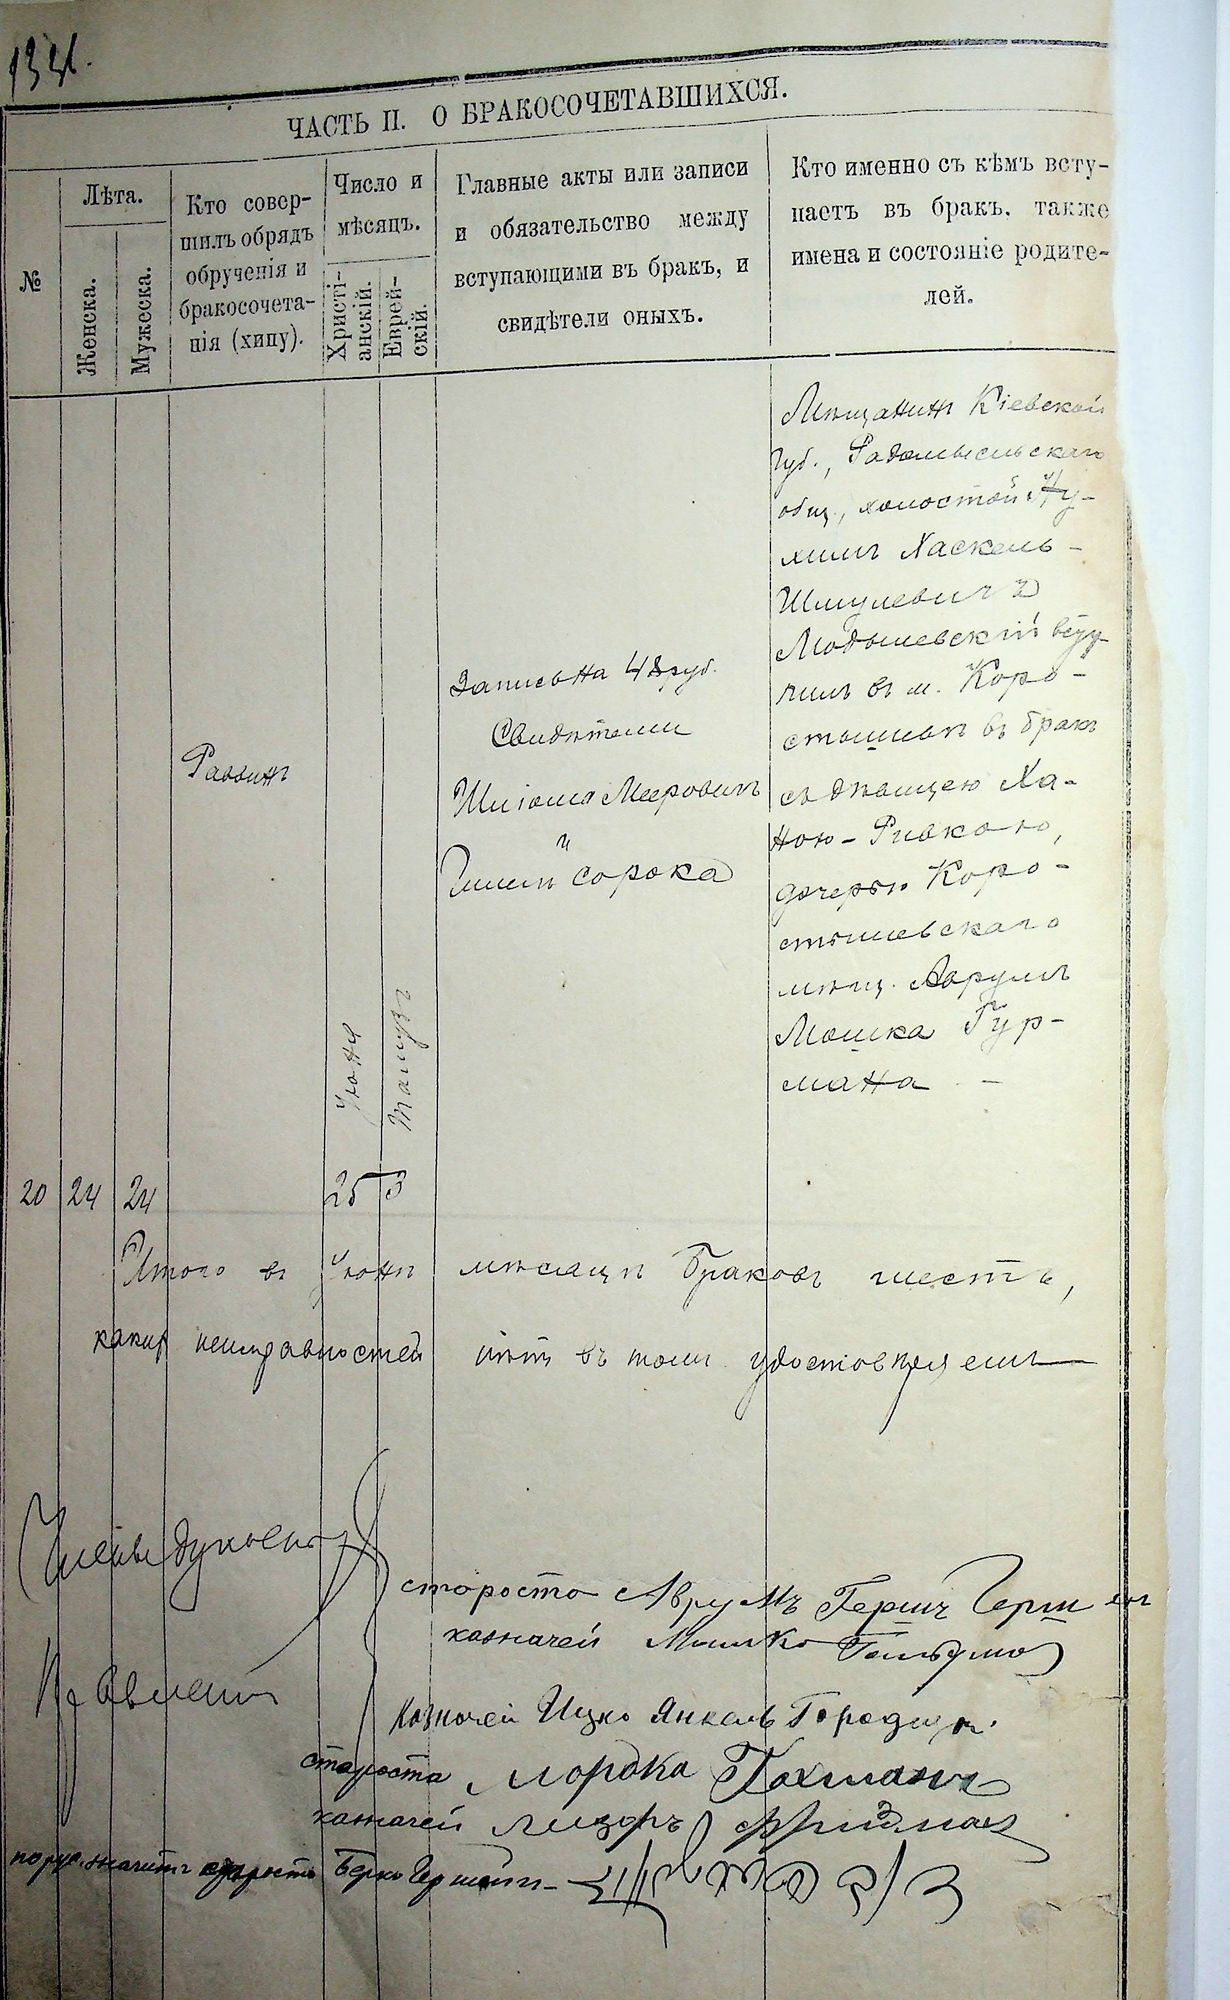 ЧАСТЬ II. О БРАКОСОЧЕТАВШИХСЯ.
№
Лѣта.
Женска.
Мужеска.
Кто совер-
шилъ обрядъ
обрученія и
бракосочета-
нія (хипу).
Число и
мѣсяцъ.
Христі-
анскій.
Еврей-
скій.
Главные акты или записи
и обязательство между
вступающими въ бракъ, и
свидѣтели оныхъ.
Кто именно съ кѣмъ всту-
паетъ въ бракъ, также
имена и состояніе родите-
лей.
20
24
24
Раввинъ
Іюня
25
Тамузъ
3
Запись на 48 руб.
Свидѣтели
Меровичъ
и
Сорока
Мѣщанинъ Кіевской
губ., Радомысльскаго
общ., холостой Ну-
химъ Хаскель-
Шмулевичъ
всту
пилъ въ м. Коро-
стышевѣ въ бракъ
съ дѣвицею Ха-
ною-Ривкою,
дочерью Коро-
стышевскаго
мѣщ. Аврумъ
Мошка Гур-
мана
Итого въ Іюнѣ мѣсяцѣ браковъ шесть,
какихъ неисправностей нѣтъ въ томъ удостовѣряемъ
Члены Духовнаго
Правленія
староста Аврумъ Гершъ
казначей Мошко
казначей Ицко Янкель
староста Мордка
казначей Лейзоръ Фридман
староста Берко